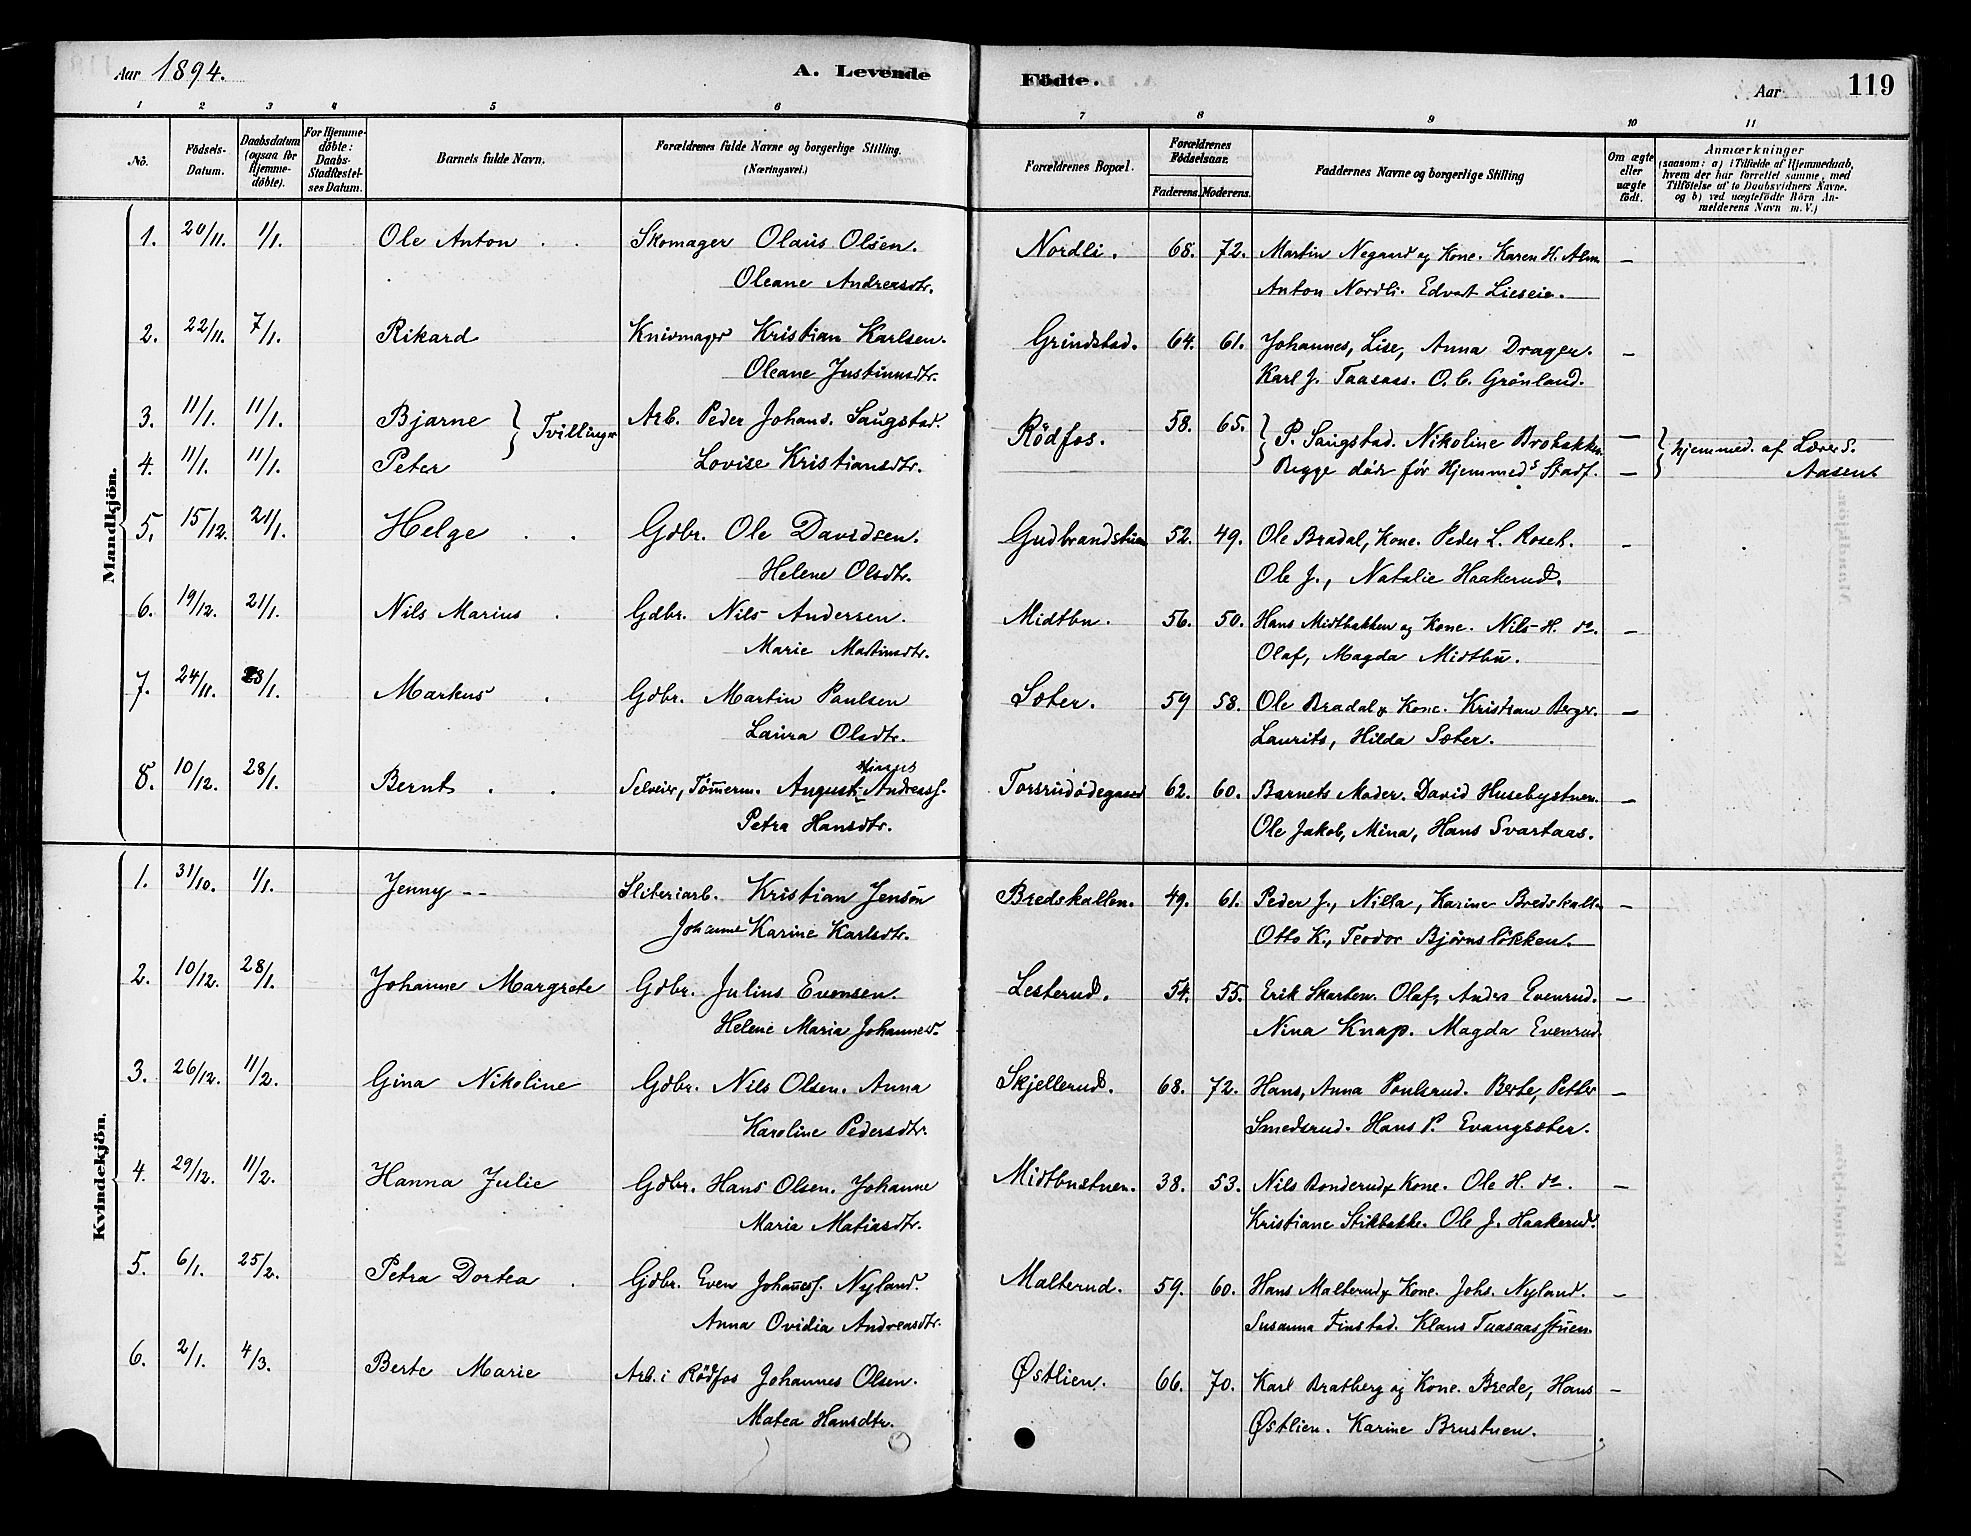 Aar 1894.
A. Levende Födte.
Aar
119
1 2 3 4 5 6 7 8 9 10 11
No.
Födsels-Datum.
Daabsdatum (ogsaa for Hjemme-döbte).
For Hjemme-döbte: Daabs-Stadfæstel-ses Datum.
Barnets fulde Navn.
Forældrenes fulde Navne og borgerlige Stilling. (Næringsvei.)
Forældrenes Bopæl.
Forældrenes Födselsaar.
Faderens. Moderens.
Faddernes Navne og borgerlige Stilling
Om ægte eller uægte födt.
Anmærkninger (saasom: a) i Tilfælde af Hjemmedaab, hvem der har forrettet samme, med Tilföielse af to Daabsvidners Navne. og b) ved uægtefödte Börn An-melderens Navn m. V.)
Mandkjön.
1. 20/11. 1/1. Ole Anton Skomager Olaus Olsen. Nordli. 68. 72. Martin Negaard og Kone. Karen H. Alm —
Oleane Andreasdtr. Anton Nordli. Edvart Lieseie.
2. 22/11. 7/1. Rikard Knivmager Kristian Karlsen. Grindstad. 64. 61. Johannes, Lise, Anna Drager. —
Oleane Justinusdtr. Karl J. Taasaas. O. C. Grönland.
3. 11/1. 11/1. Bjarne } Tvillinger Arb. Peder Johans. Saugstad. Rödfos. 58. 65. } P. Saugstad. Nikoline Brobakken. — } hjemmed. af Lærer S.
4. 11/1. 11/1. Peter Lovise Kristiansdtr. Begge döde för Hjemmeds Stadf. — Aasen
5. 15/12. 21/1. Helge Gdbr. Ole Davidsen. Gudbrandstuen 52. 49. Ole Bradal, Kone. Peder L. Roset. —
Helene Olsdtr. Ole J., Natalie Haakerud.
6. 19/12. 21/1. Nils Marius Gdbr. Nils Andersen. Midtbu. 56. 50. Hans Midtbakken og Kone. Nils H. do. —
Marie Martinsdtr. Olaf, Magda Midtbu.
7. 24/11. 28/1. Markus Gdbr. Martin Paulsen Sæter. 59 58. Ole Bradal & Kone. Kristian Berger. —
Laura Olsdtr. Laurits, Hilda Sæter.
8. 10/12. 28/1. Bernt Selveier, Tömmerm. August Andreass. Torsrudödegaard 62. 60. Barnets Moder. David Husebystuen. —
Petra Hansdtr. Ole Jakob, Mina, Hans Svartaas.
Kvindekjön.
1. 31/10. 1/1. Jenny -- Sliberiarb. Kristian Jensen Bredskallen. 49. 61. Peder J., Nilla, Karine Bredskallen —
Johanne Karine Karlsdtr. Otto K., Teodor Björnslökken.
2. 10/12. 28/1. Johanne Margrete Gdbr. Julius Evensen. Lesterud. 54. 55. Erik Skarben. Olaf, Anders Evenrud. —
Helene Maria Johannesd. Nina Knap. Magda Evenrud.
3. 26/12. 11/2. Gina Nikoline Gdbr. Nils Olsen. Anna Skjellerud. 68. 72. Hans, Anna Poulsrud. Berte, Petter —
Karoline Pedersdtr. Smedsrud. Hans P. Evangsæter.
4. 29/12. 11/2. Hanna Julie Gdbr. Hans Olsen. Johanne Midtbustuen. 38. 53. Nils Bonderud & Kone. Ole H. do. —
Maria Matiasdtr. Kristiane Stikbakke. Ole J. Haakerud.
5. 6/1. 25/2. Petra Dortea Gdbr. Even Johaness. Nyland. Malterud. 59. 60. Hans Malterud & Kone. Johs. Nyland. —
Anna Ovidia Andreasdtr. Susanna Finstad. Klaus Taasaasstuen.
6. 2/1. 4/3. Berte Marie Arb. i Rödfos Johannes Olsen. Østlien. 66. 70. Karl Bratberg og Kone. Brede, Hans —
Matea Hansdtr. Østlien. Karine Brustuen.